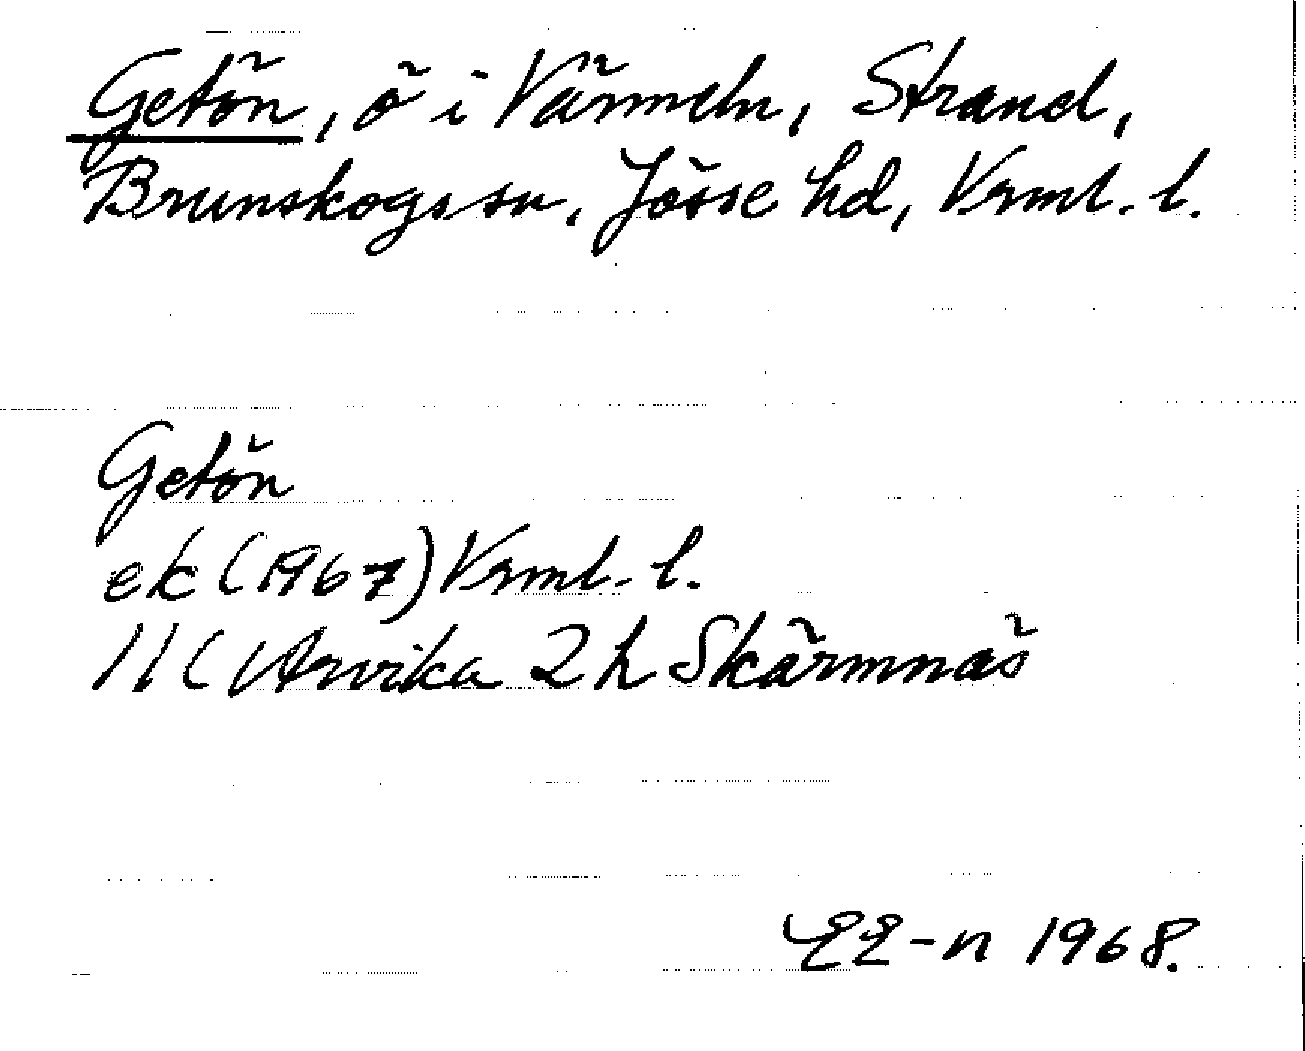 Getön, ö i Värmeln, Strand,
Brunskogs sn, Jösse hd, Vrml. l.
Getön
ek (1967) Vrml. l.
11C Arvika 2h Skärmnäs
EE-n 1968.